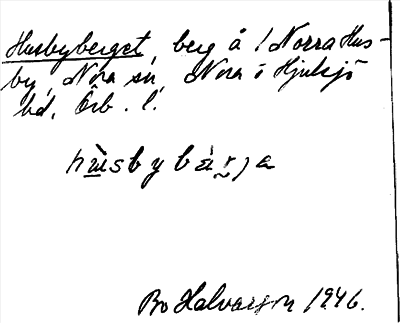 Husbyberget, berg å /Norra Hus-
by, Nora sn, Nora o Hjulsjö
hd, Örb. l.
hùsbybàrja
Bo Halvarson 1946.